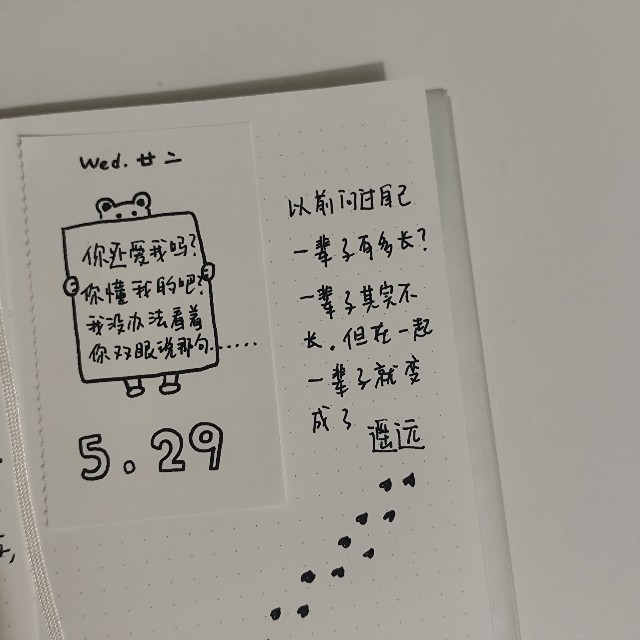 Wed. 廿二
你还爱我吗?
你懂我的吧?
我没办法看着
你双眼说那句......
5.29
以前问过自己
一辈子有多长?
一辈子其实不
长。但在一起
一辈子就变
成了
遥远